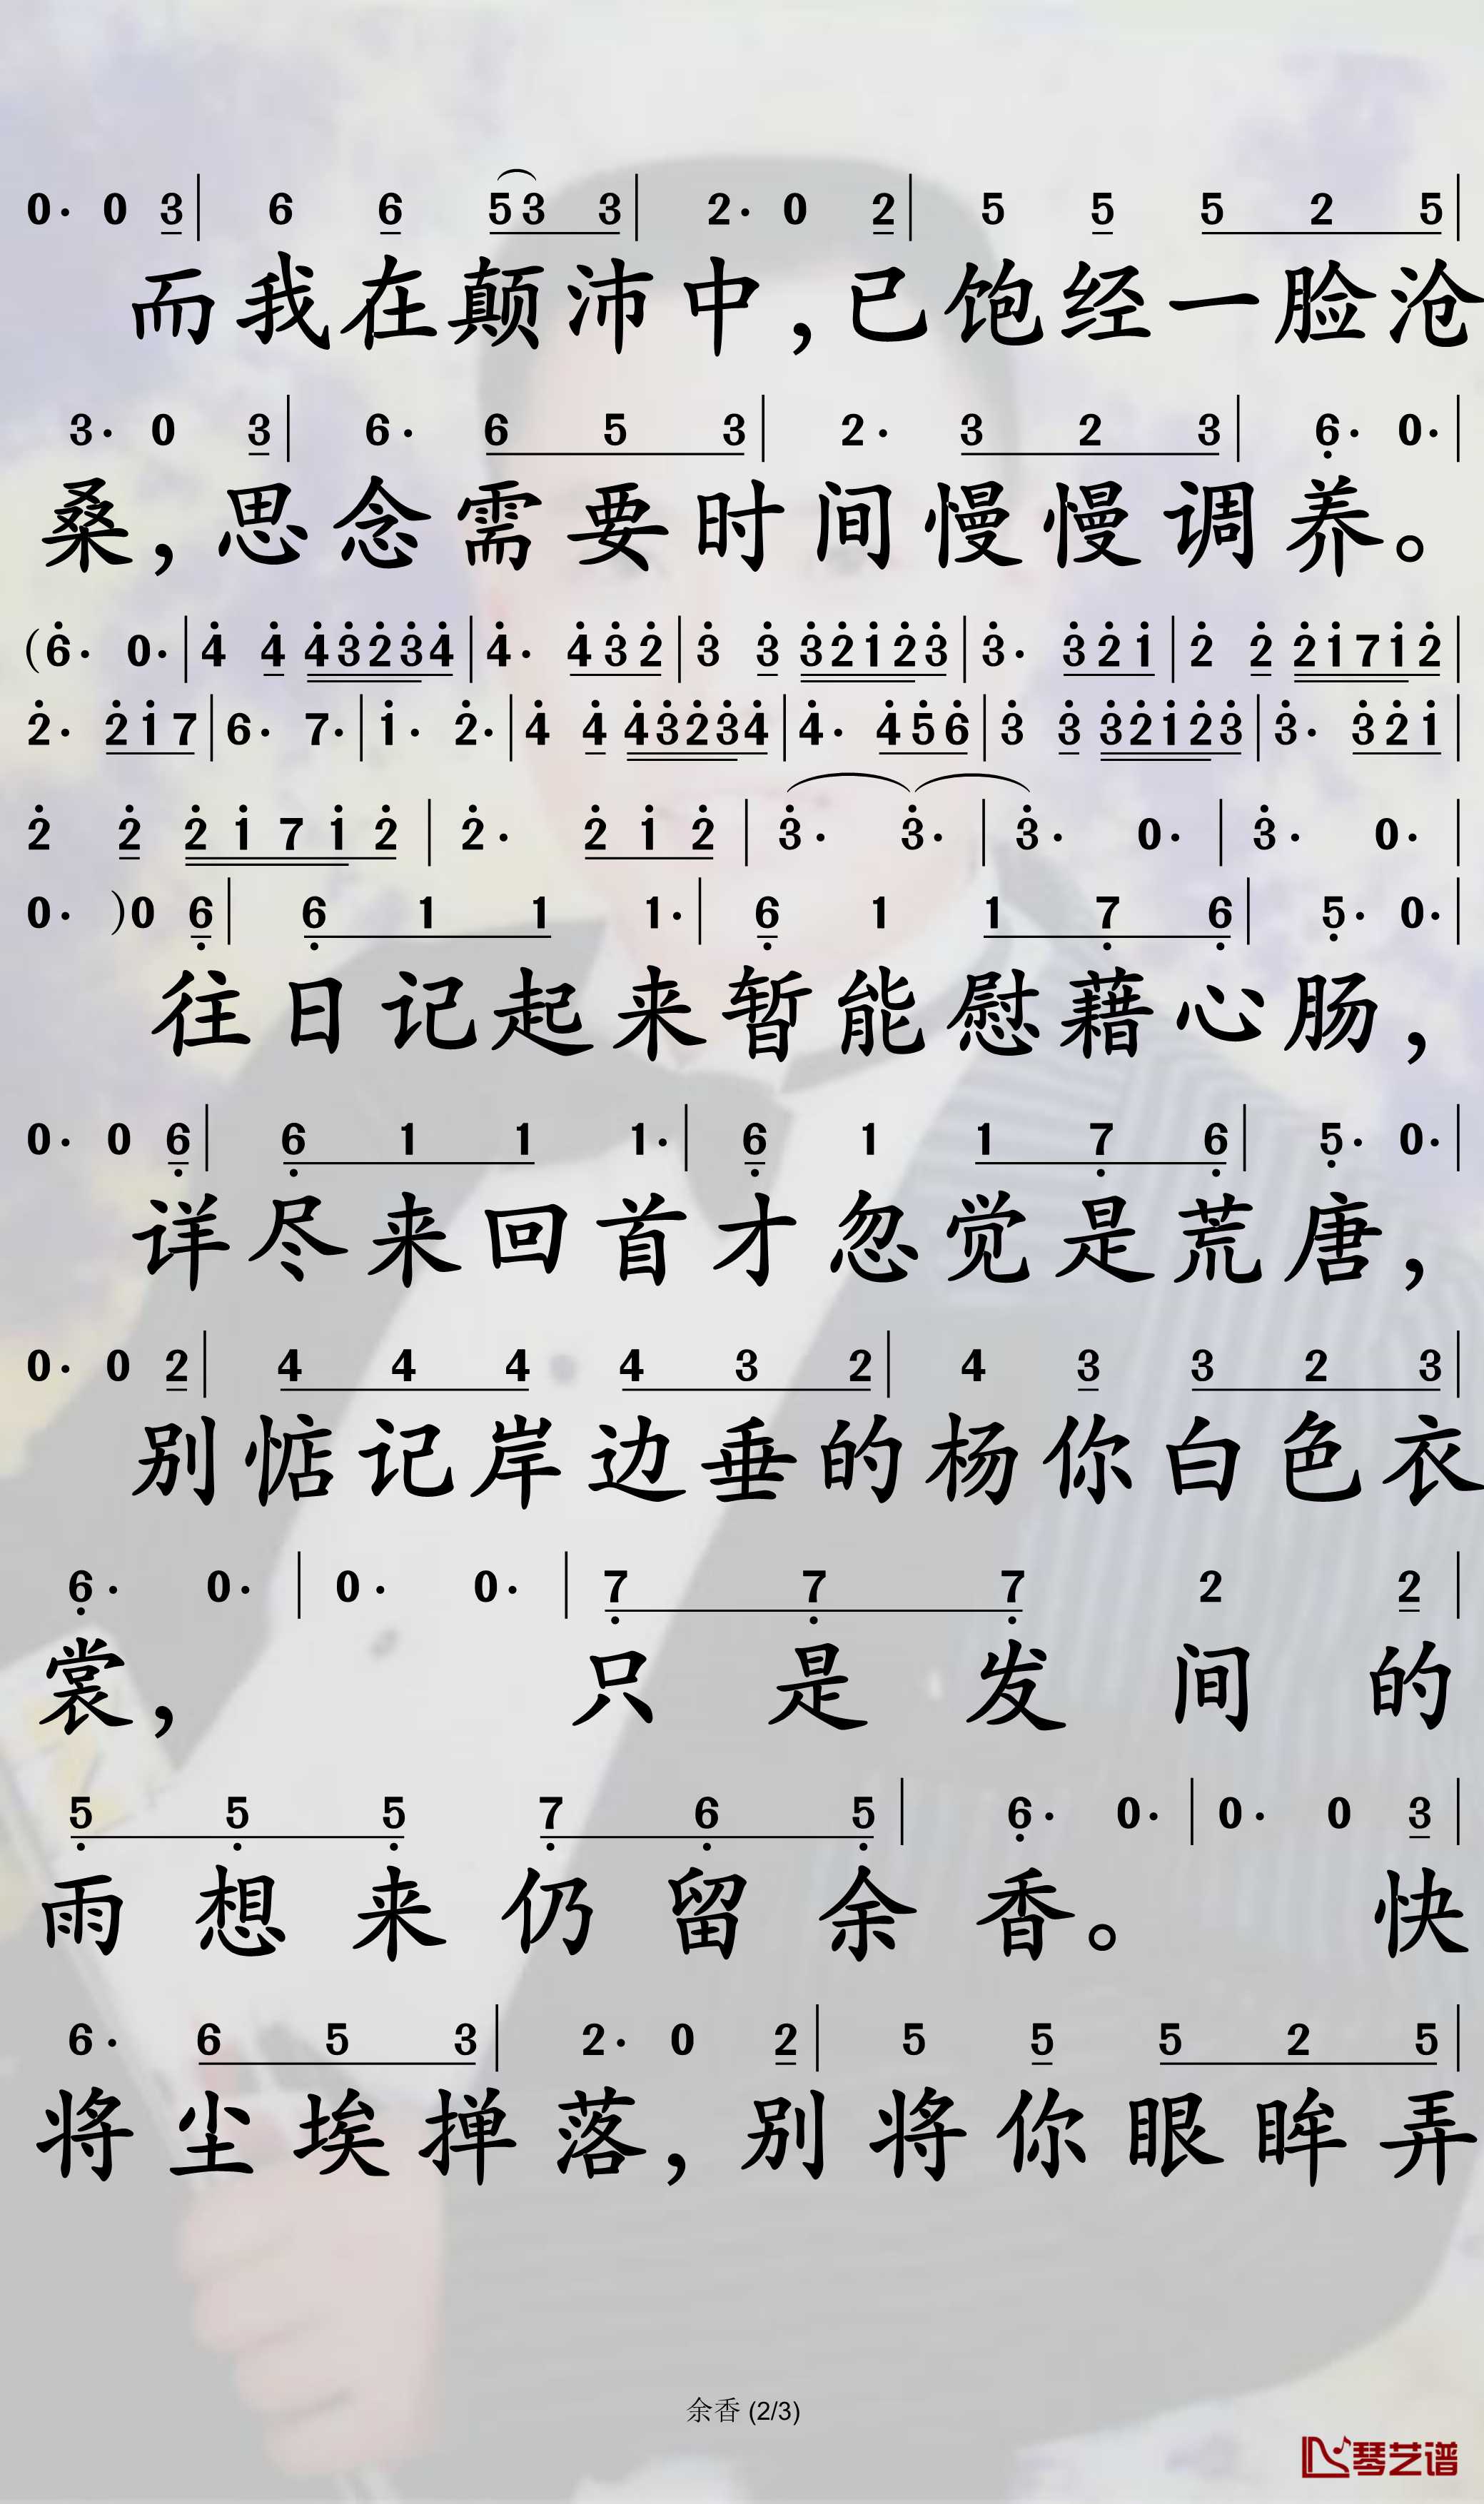 0· 0 3 | 6 6 5 3 3 | 2· 0 2 | 5 5 5 2 5 |
而我在颠沛中,已饱经一脸沧
3· 0 3 | 6· 6 5 3 | 2· 3 2 3 | 6· 0· |
桑,思念需要时间慢慢调养。
(6· 0· | 4 4 4 3 2 3 4 | 4· 4 3 2 | 3 3 3 2 1 2 3 | 3· 3 2 1 | 2 2 2 1 7 1 2 |
2· 2 1 7 | 6· 7· | 1· 2· | 4 4 4 3 2 3 4 | 4· 4 5 6 | 3 3 3 2 1 2 3 | 3· 3 2 1 |
2 2 2 1 7 1 2 | 2· 2 1 2 | 3· 3· | 3· 0· | 3· 0· |
0· )0 6 | 6 1 1 1· | 6 1 1 7 6 | 5· 0· |
往日记起来暂能慰藉心肠,
0· 0 6 | 6 1 1 1· | 6 1 1 7 6 | 5· 0· |
详尽来回首才忽觉是荒唐,
0· 0 2 | 4 4 4 4 3 2 | 4 3 3 2 3 |
别惦记岸边垂的杨你白色衣
6· 0· | 0· 0· | 7 7 7 2 2 |
裳, 只是发间的
5 5 5 7 6 5 | 6· 0· | 0· 0 3 |
雨想来仍留余香。 快
6· 6 5 3 | 2· 0 2 | 5 5 5 2 5 |
将尘埃掸落,别将你眼眸弄
余香 (2/3)
琴艺谱